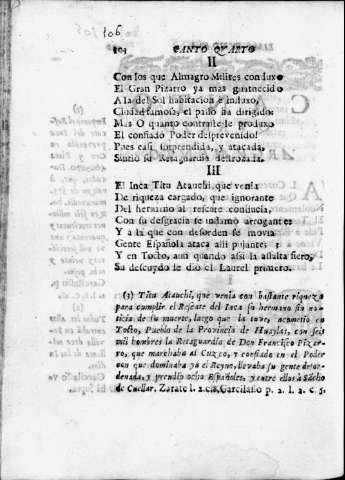 106
CANTO QVARTO
II
Con los que Almagro Milites conduxo
El Gran Pizarro ya mas guarnecido
A la del Sol habitacion induxo,
Ciudad famosa, el passo ha dirigido:
Mas O quanto contraste le produxo
El confiado Poder desprevenido!
Pues casi sorprendida, y atacada,
Sintió su Retaguardia destrozada.
III
El Inca Titu Atauchi, que venia
De riqueza cargado, que ignorante
Del hermano al rescate conducia,
Con su desgracia se inflamó arrogante:
Y a la que con desorden se movia
Gente Española ataca alli pujante;
Y en Tocto, aun quando assi la assalta fiero,
Su descuydo le dió el Laurel primero.
(3) Titu Atauchi, que venia con bastante riqueza
para cumplir el Rescate del Inca su hermano sin no-
ticia de su muerte, luego que la tuvo, acometió en
Tocto, Pueblo de la Provincia de Huaylas, con seis
mil hombres la Retaguardia de Don Francisco Pizar-
ro, que marchaba al Cuzco, y confiado en el Poder
con que dominaba ya el Reyno, llevaba su gente desor-
denada, y prendió ocho Españoles, y entre ellos à Sācho
de Cuellar. Zarate l. 2. c. 8. Garcilasso p. 2. l. 2. c. 5.